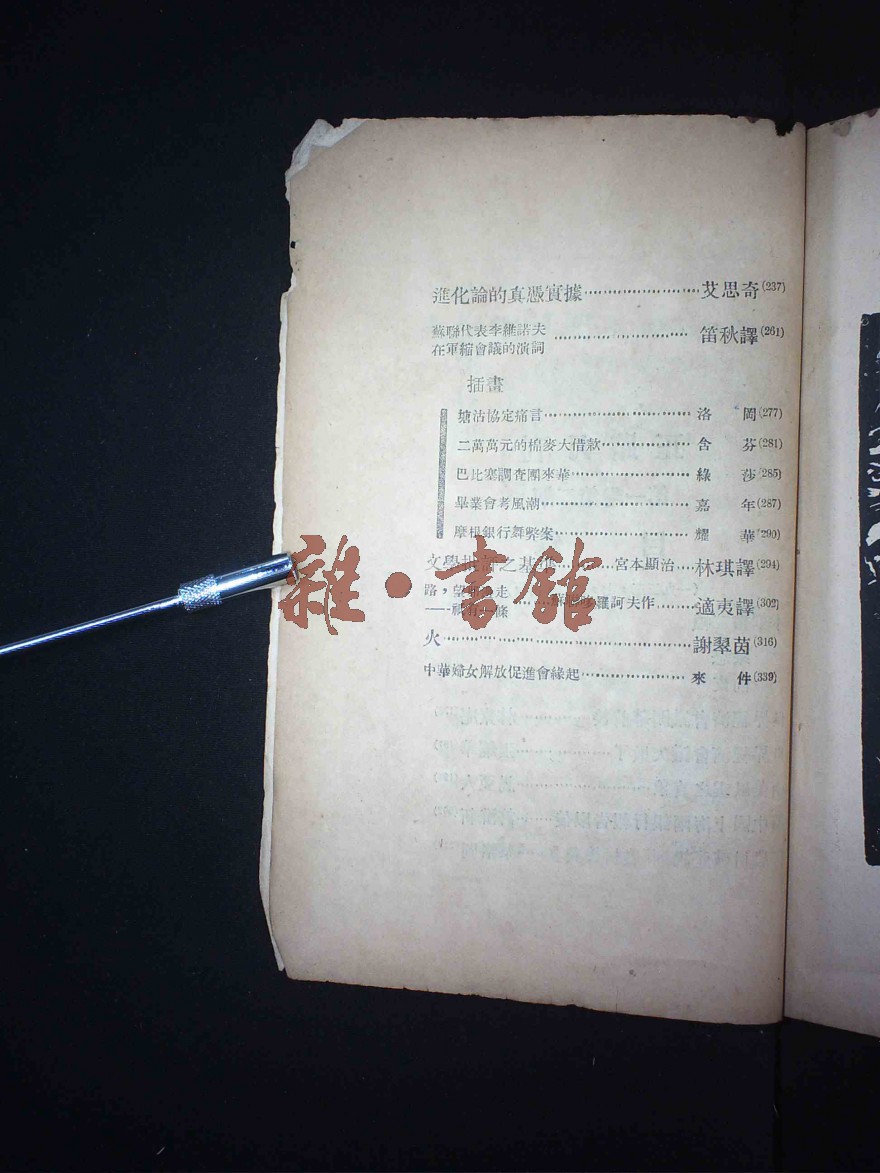 進化論的真憑實據 艾思奇(237)
蘇聯代表李維諾夫
在軍縮會議的演詞 笛秋譯(261)
插畫
塘沽協定痛言 洛岡(277)
二萬萬元的棉麥大借款 含芬(281)
巴比塞調查團來華 綠莎(285)
畢業會考風潮 嘉年(287)
摩根銀行舞弊案 耀華(290)
文學批評之基 宮本顯治 林琪譯(294)
路，望 走
羅訶夫作 適夷譯(302)
—— 條
火 謝翠茵(316)
中華婦女解放促進會緣起 來件(339)
雜·書館